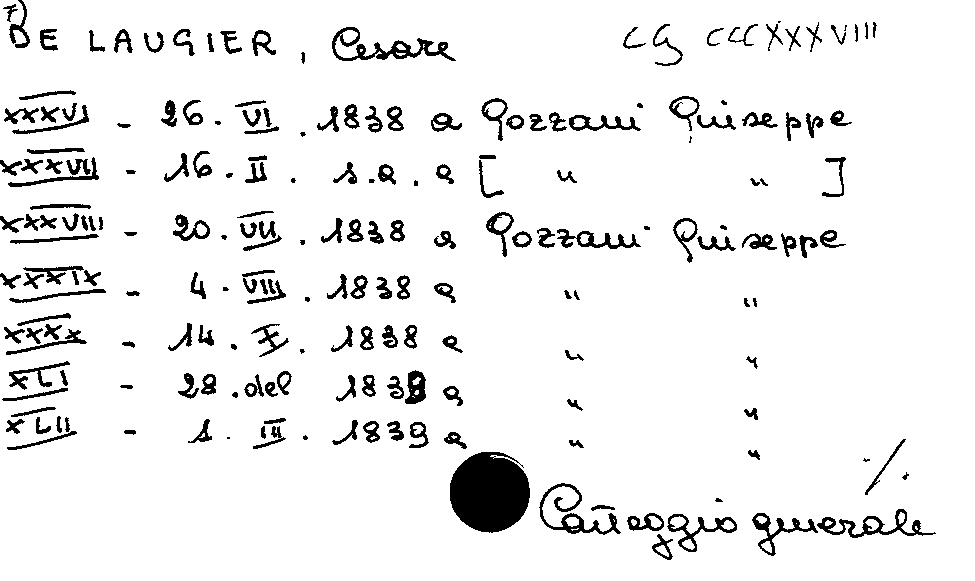 7)
DE LAUGIER, Cesare CG CCCXXXVIII
XXXVI - 26. VI. 1838 a Gozzani Giuseppe
XXXVII - 16. II. s.a. a [ " " ]
XXXVIII - 20. VII. 1838 a Gozzani Giuseppe
XXXIX - 4. VIII. 1838 a " "
XXXX - 14. X. 1838 a " "
XLI - 28. del 1838 a " "
XLII - 1. III. 1839 a " "
./.
Carteggio generale